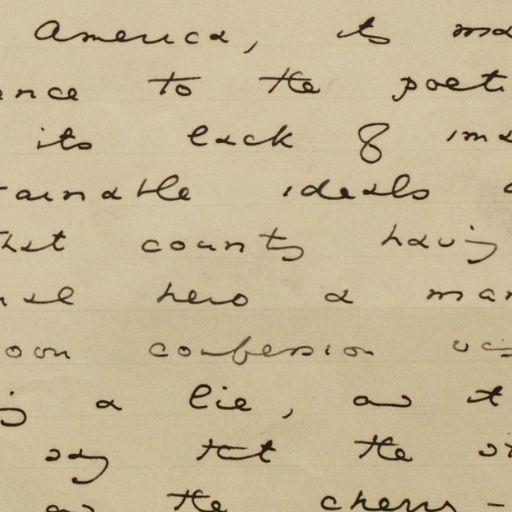 America, its ma
ence to the poeti
its lack of ima
tainable ideals
that country having
hero a man
confession was
a lie, and it
say that the
and the cherry-